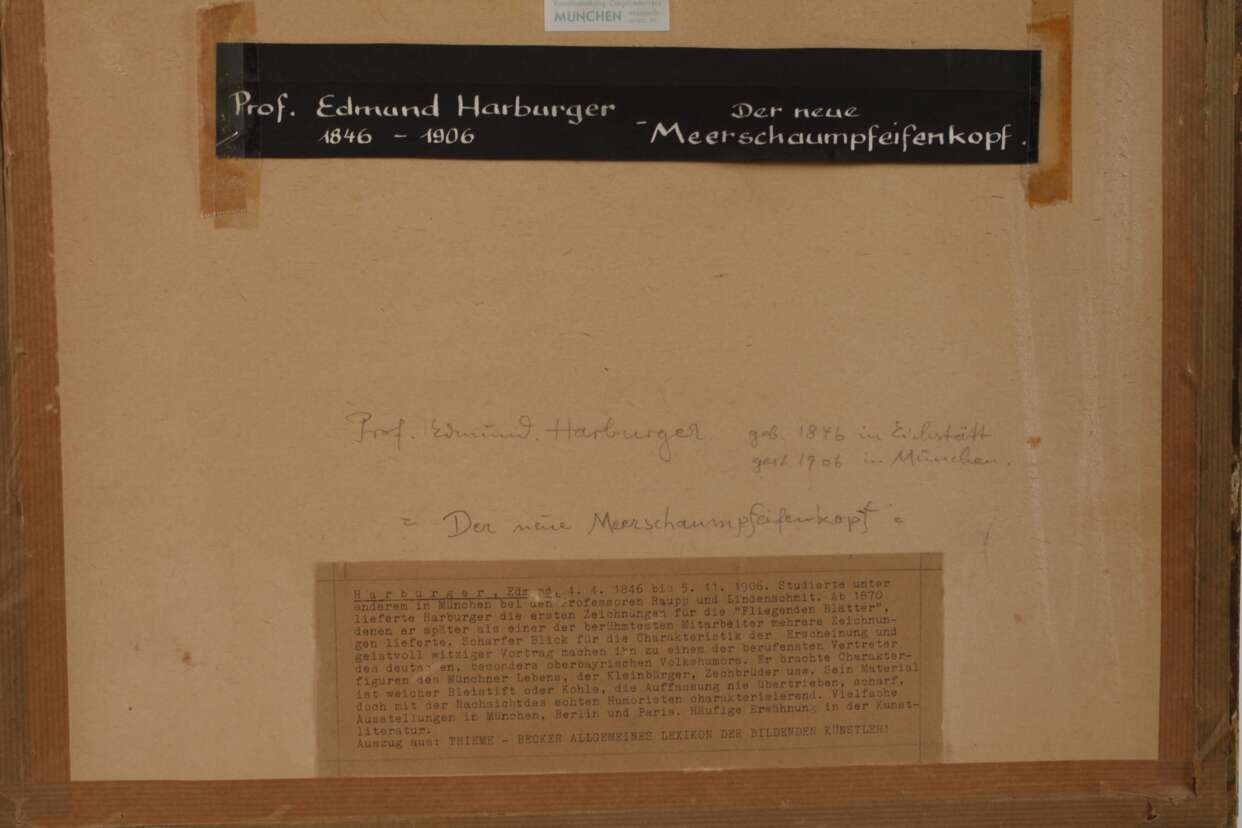 MÜNCHEN
Prof. Edmund Harburger
1846 - 1906
Der neue
- Meerschaumpfeifenkopf.
Prof. Edmund. Harburger geb. 1846 in Eichstätt
gest 1906 in München.
= Der neue Meerschaumpfeifenkopf =
Harburger, Edmund, 4. 4. 1846 bis 5. 11. 1906. Studierte unter
anderem in München bei den Professoren Raupp und Lindenschmit. Ab 1870
lieferte Harburger die ersten Zeichnungen für die "Fliegenden Blätter",
denen er später als einer der berühmtesten Mitarbeiter mehrere Zeichnun-
gen lieferte. Scharfer Blick für die Charakteristik der Erscheinung und
geistvoll witziger Vortrag machen ihn zu einem der berufensten Vertreter
des deutschen, besonders oberbayrischen Volkshumors. Er brachte Charakter-
figuren des Münchner Lebens, der Kleinbürger, Zechbrüder usw. Sein Material
ist weicher Bleistift oder Kohle, die Auffassung nie übertrieben, scharf,
doch mit der Nachsichtdas echten Humoristen charakterisierend. Vielfache
Ausstellungen in München, Berlin und Paris. Häufige Erwähnung in der Kunst-
literatur.
Auszug aus: THIEME - BECKER ALLGEMEINES LEXIKON DER BILDENDEN KÜNSTLER!